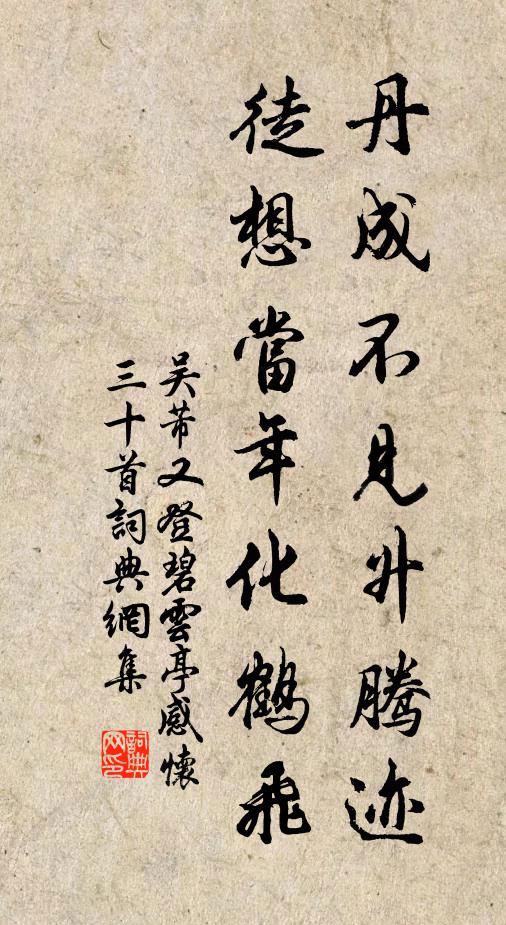 丹成不見升騰迹
徒想當年化鶴飛
吴芾又登碧雲亭感懷
三十首詞典網集
詞典
网印